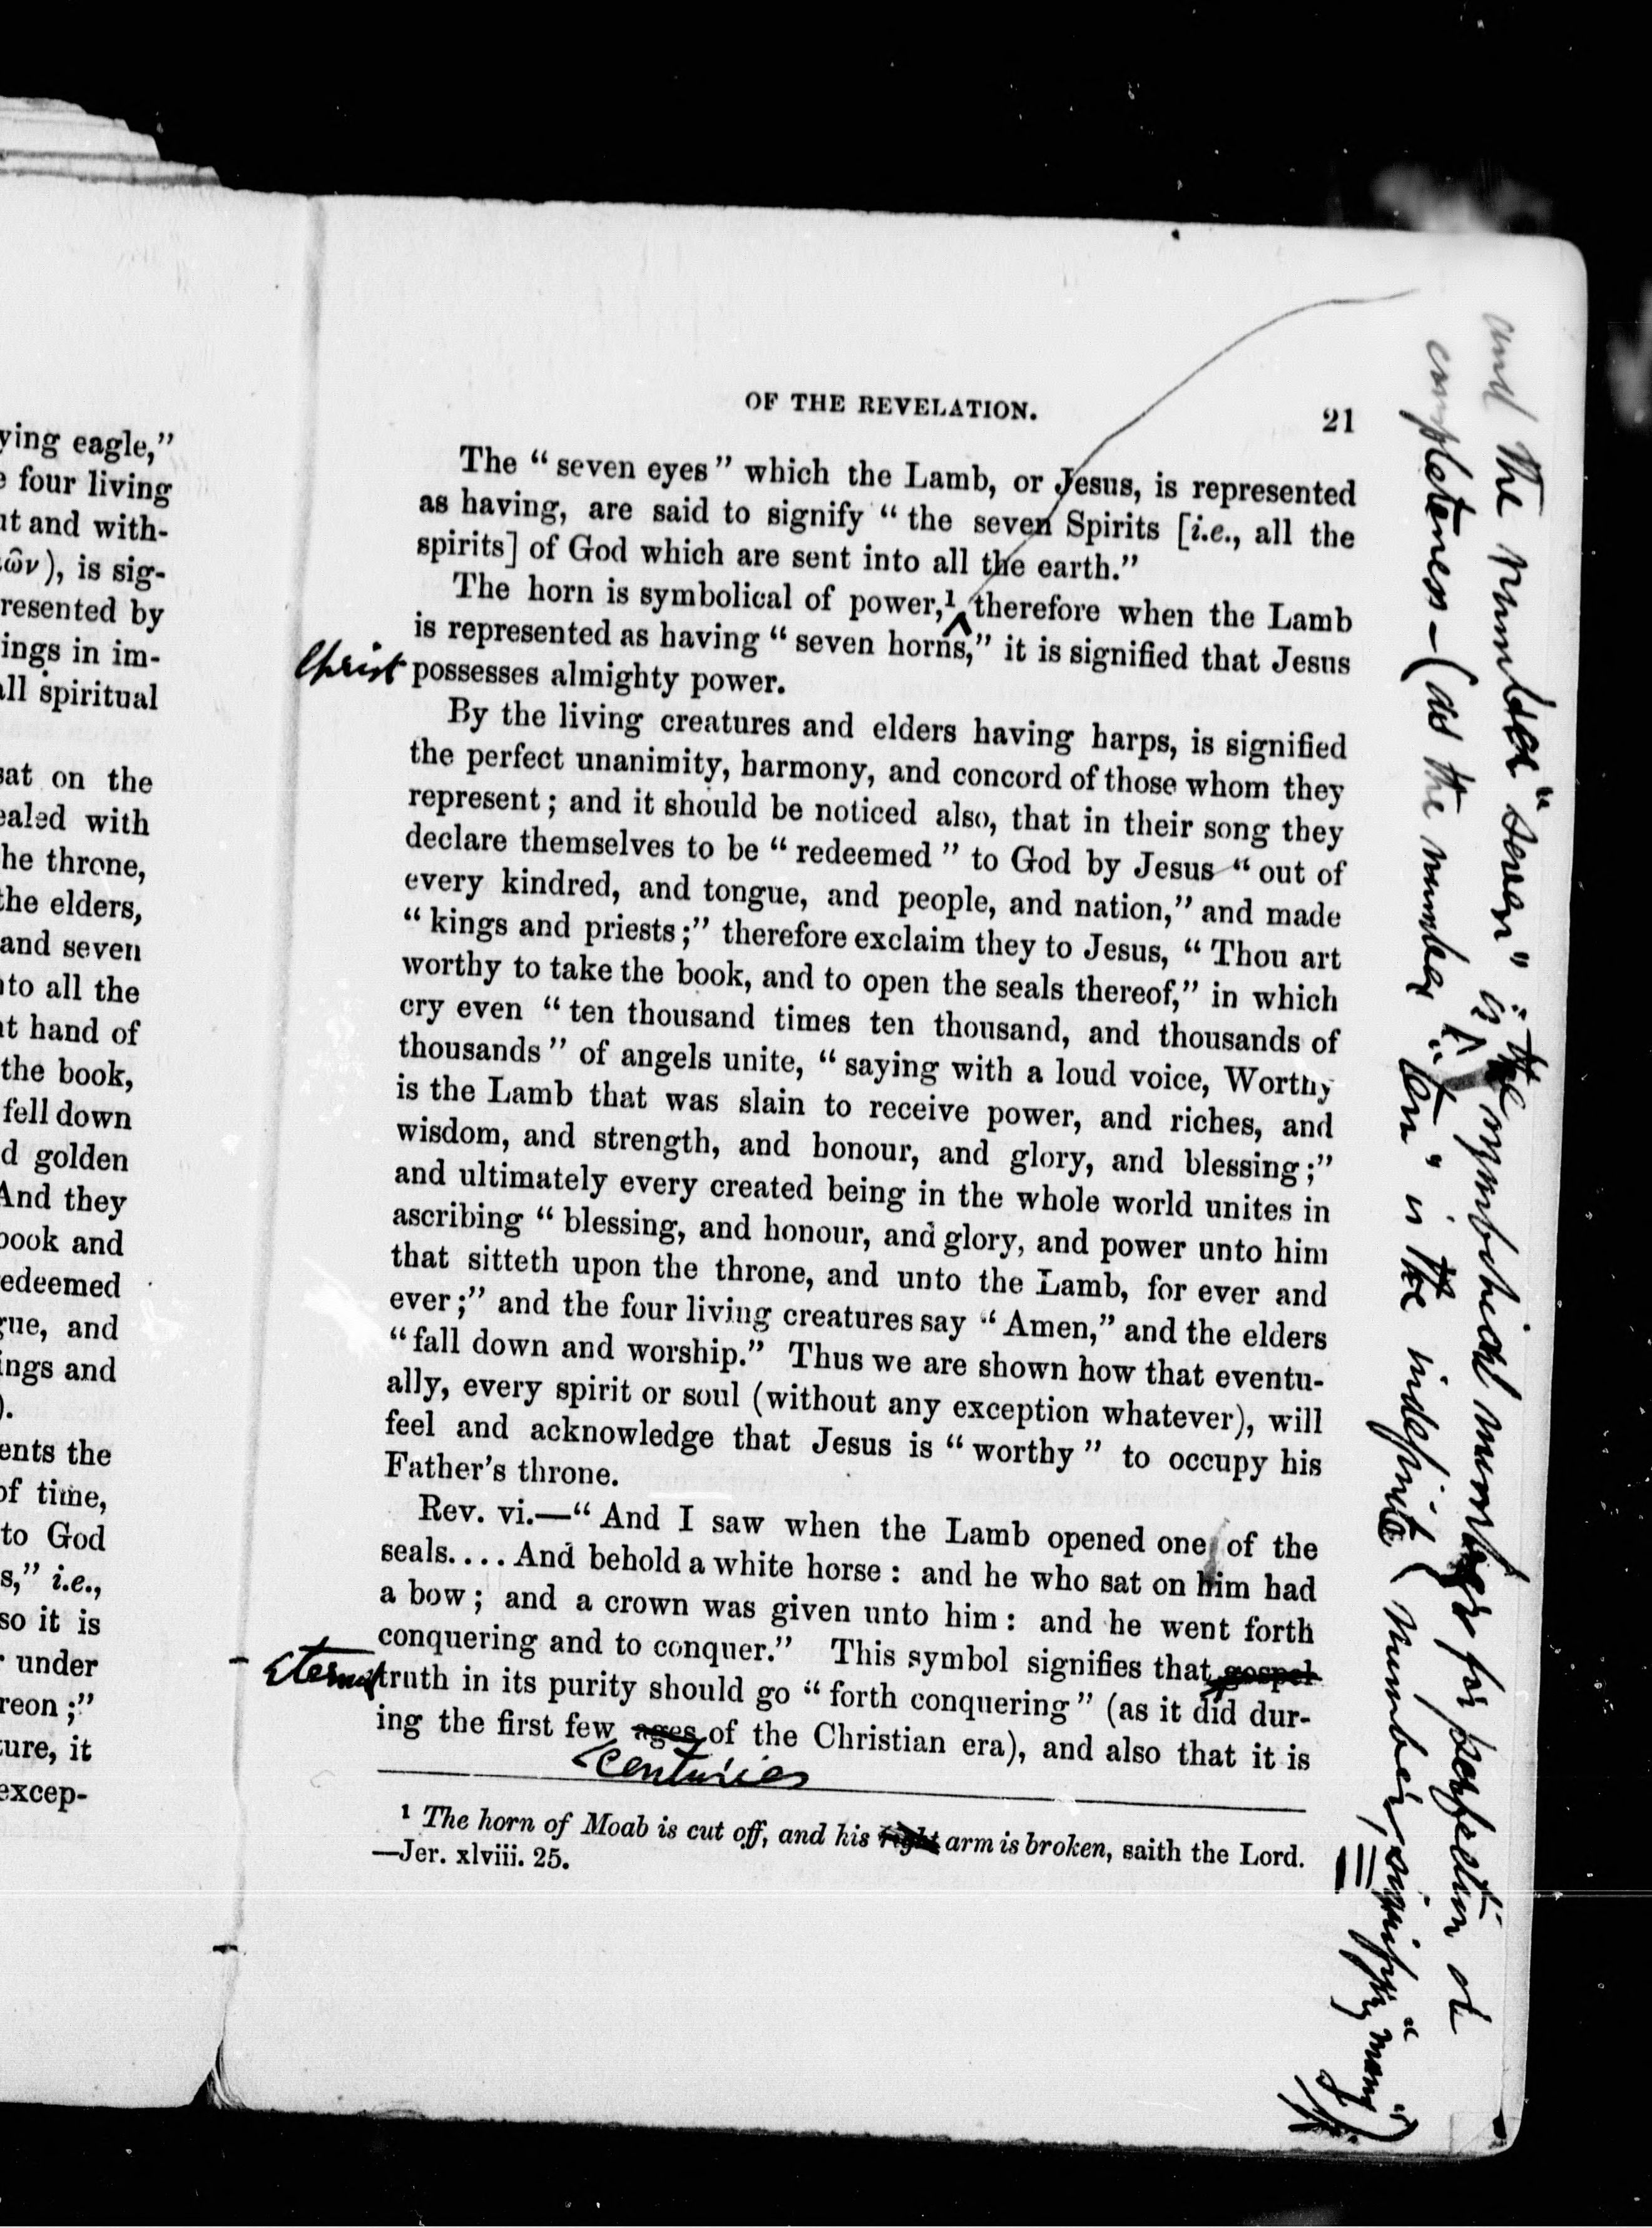 ying eagle,"
four living
and with-
ῶν), is sig-
resented by
ings in im-
all spiritual
sat on the
ealed with
he throne,
the elders,
and seven
to all the
hand of
the book,
fell down
golden
And they
book and
edeemed
gue, and
ings and
).
ents the
of time,
to God
s," i.e.,
so it is
under
reon;"
ture, it
excep-
OF THE REVELATION.
21
The "seven eyes" which the Lamb, or Jesus, is represented
as having, are said to signify "the seven Spirits [i.e., all the
spirits] of God which are sent into all the earth."
The horn is symbolical of power,¹ therefore when the Lamb
is represented as having "seven horns," it is signified that Jesus
Christ
possesses almighty power.
By the living creatures and elders having harps, is signified
the perfect unanimity, harmony, and concord of those whom they
represent; and it should be noticed also, that in their song they
declare themselves to be "redeemed" to God by Jesus "out of
every kindred, and tongue, and people, and nation," and made
"kings and priests;" therefore exclaim they to Jesus, "Thou art
worthy to take the book, and to open the seals thereof," in which
cry even "ten thousand times ten thousand, and thousands of
thousands" of angels unite, "saying with a loud voice, Worthy
is the Lamb that was slain to receive power, and riches, and
wisdom, and strength, and honour, and glory, and blessing;"
and ultimately every created being in the whole world unites in
ascribing "blessing, and honour, and glory, and power unto him
that sitteth upon the throne, and unto the Lamb, for ever and
ever;" and the four living creatures say "Amen," and the elders
"fall down and worship." Thus we are shown how that eventu-
ally, every spirit or soul (without any exception whatever), will
feel and acknowledge that Jesus is "worthy" to occupy his
Father's throne.
Rev. vi.—"And I saw when the Lamb opened one of the
seals.... And behold a white horse: and he who sat on him had
a bow; and a crown was given unto him: and he went forth
conquering and to conquer." This symbol signifies that gospel
eternal
truth in its purity should go "forth conquering" (as it did dur-
ing the first few ages of the Christian era), and also that it is
centuries
¹ The horn of Moab is cut off, and his right arm is broken, saith the Lord.
—Jer. xlviii. 25.
and the number "seven" is the symbolical number for perfection or
completeness—(as the number "ten" is the indefinite number, signifying "many")